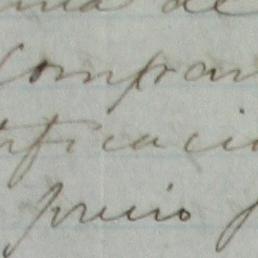 de
Compran
tificacio
precio p